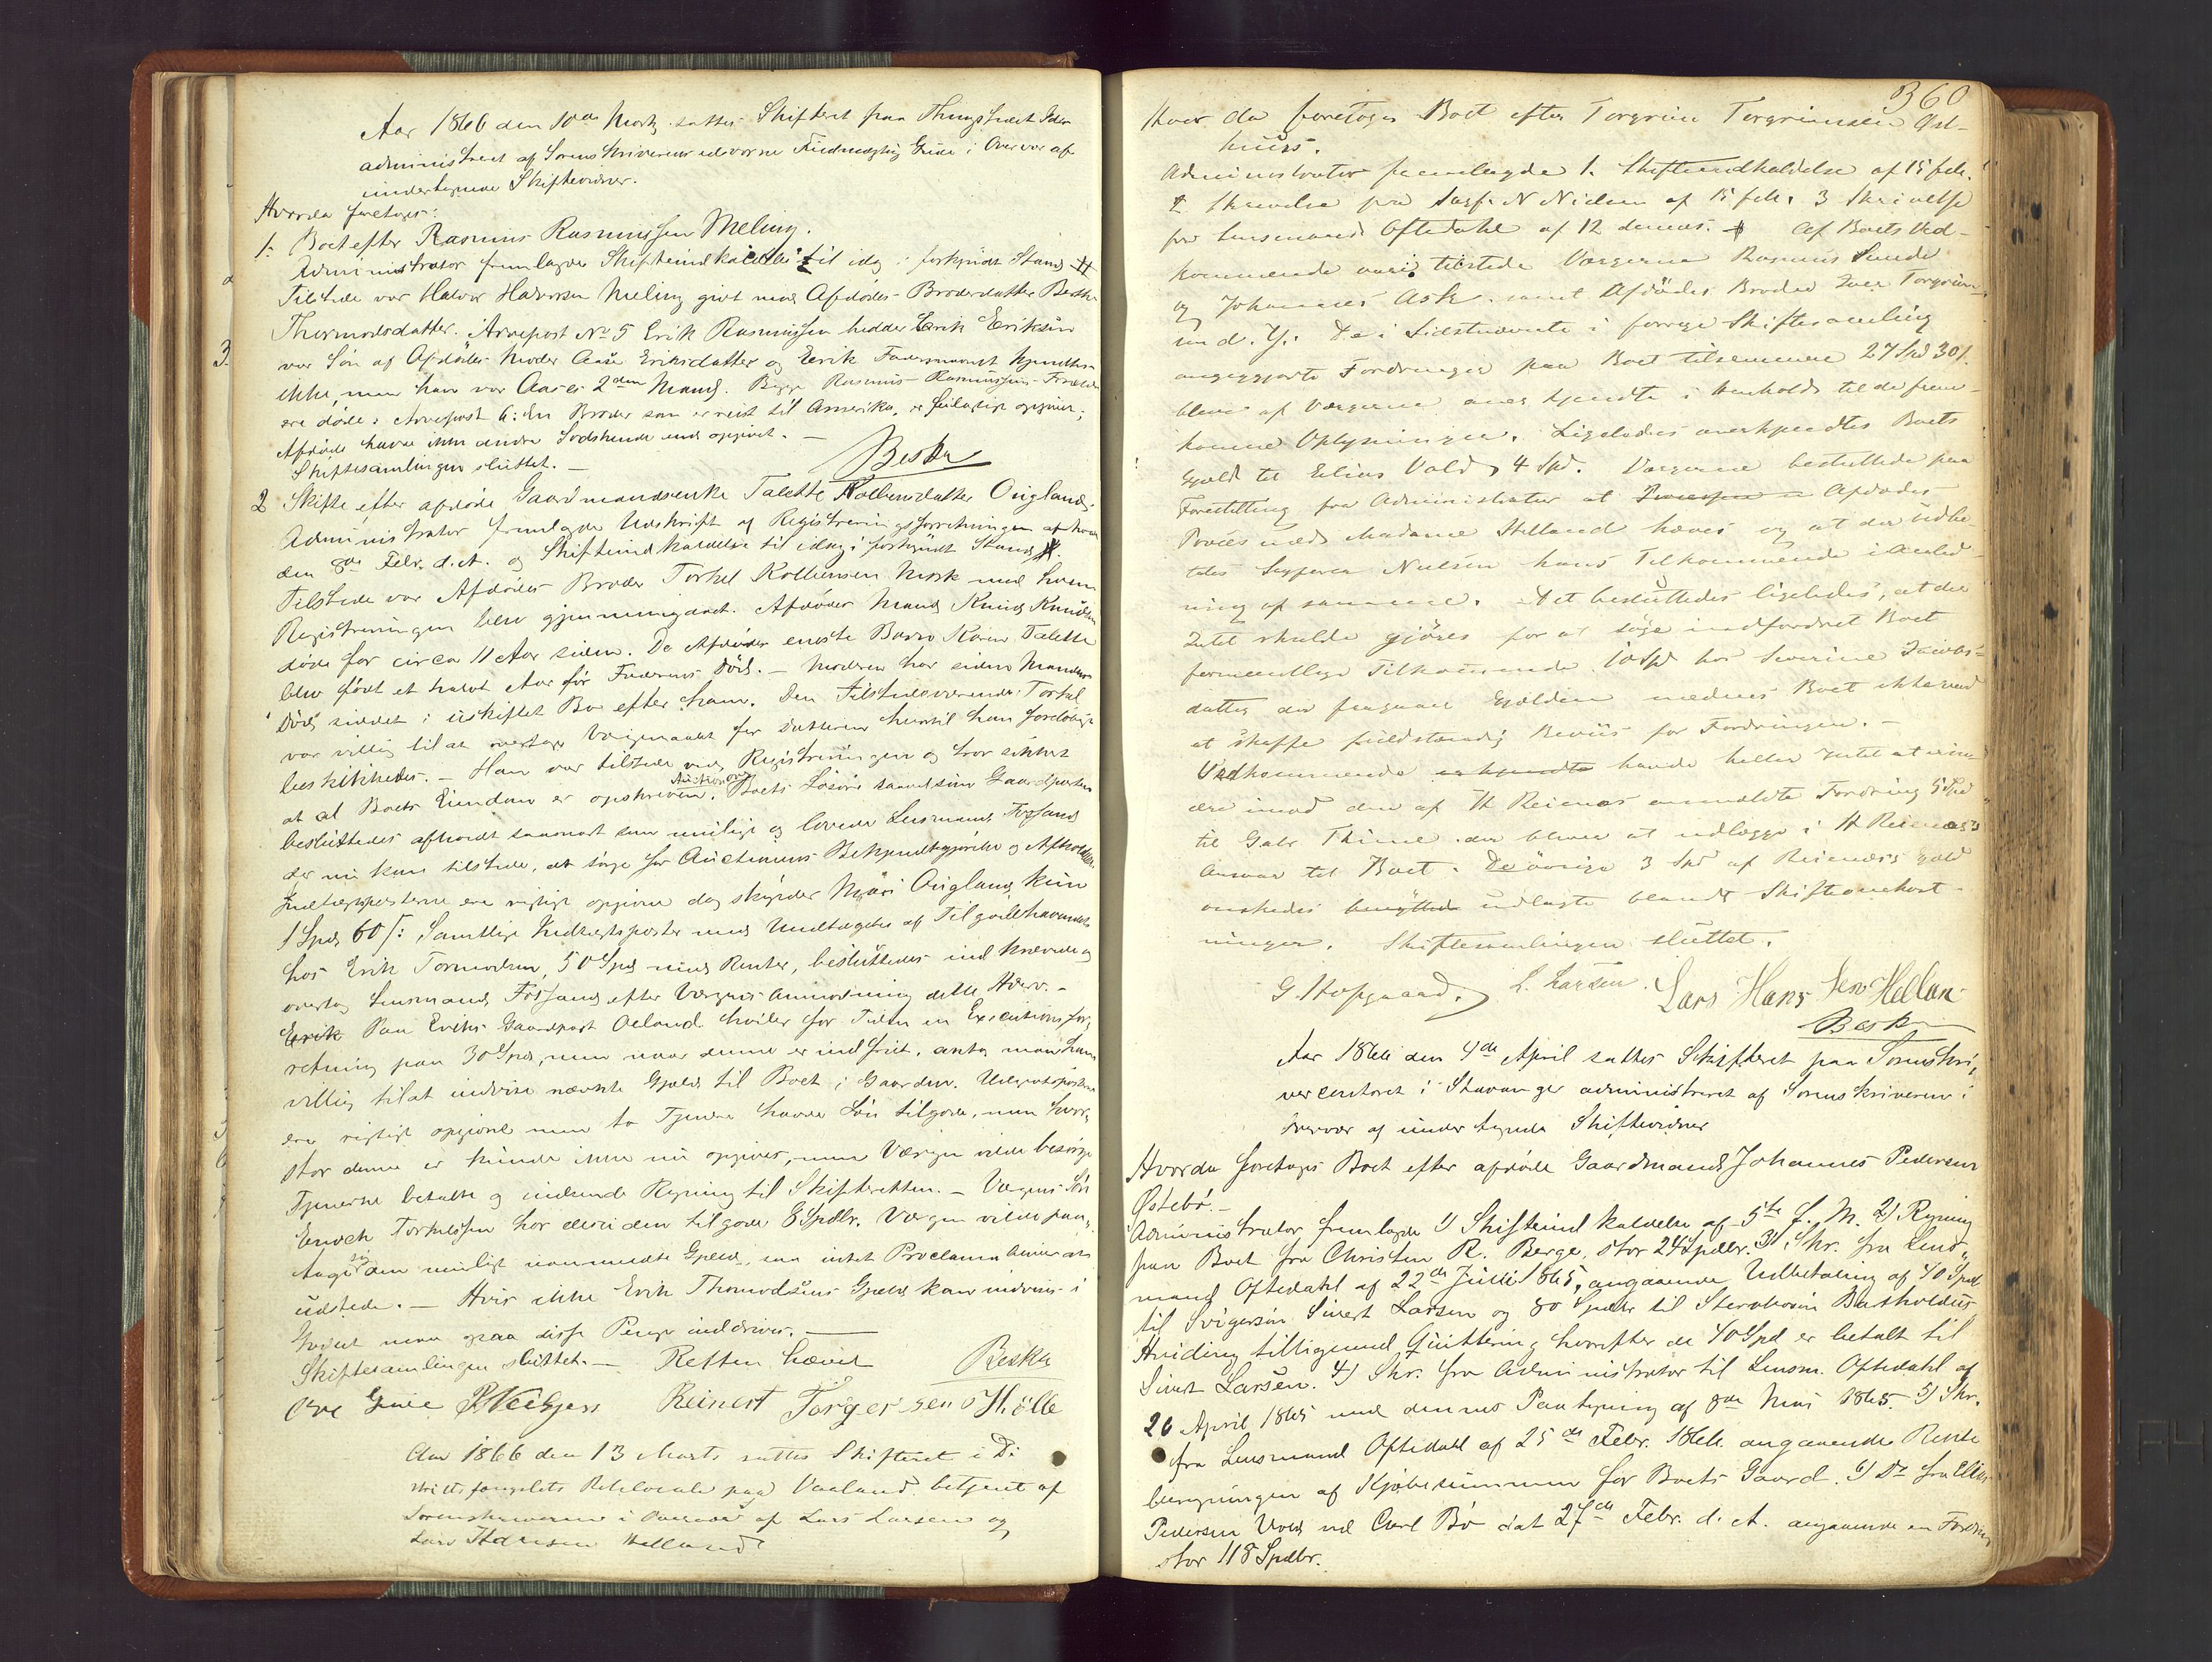 Aar 1866 den 10de Marts sattes Skifteret paa Thingstedet
administreret af Sorenskriverens edsvorne Fuldmægtig Grude i Overvær af
undertegnede Skiftevidner.
Hvorda foretoges:
1. Boet efter Rasmus Rasmussen Meling.
Administrator fremlagde Skifteindkaldelse til idag i forkyndt Stand #
Tilstede var Halvor Halvorsen Meling givt med Afdødes Broderdatter Berthe
Thormodsdatter. Arvepost No 5 Erik Rasmussen hedder Erik Eriksen
var Søn af Afdødes Moder Aase Eriksdatter og Erik
ikke, men han var Aases 2den Mand. Begge Rasmus Rasmussens Forældre
ere døde. Arvepost 6: En Broder som er reist til Amerika, er
Afdøde havde ikke andre Sødskende end opgivet. —
Skiftesamlingen sluttet. — Beska
2 Skifte efter afdøde Gaardmandsenke Talette Kolbensdatter Ougland.
Administrator fremlagde Udskrift af Registreringsforretningen af
den 8de Febr. d. A. og Skifteindkaldelse til idag i forkyndt Stand #.
Tilstede var Afdødes Broder Torkel Kolbensen Mosk med hvem
Registreringen blev gjennemgaaet. Afdødes Mand Knud Knudsen
døde for circa 11 Aar siden. De Afdødes eneste Barn Karen Talette
blev født et halvt Aar før Faderens Død. — Moderen har siden Mandens
Død siddet i uskiftet Bo efter ham. Den tilstedeværende Torkel
var villig til at overtage Værgemaalet for Datteren hvortil han foreløbig
beskikkedes. — Han var tilstede ved Registreringen og tror sikkert
at al Boets Eiendom er opskreven. Auction over Boets Løsøre saavelsom Gaardparten
besluttedes afholdt saasnart som muligt og lovede Lensmand Fossand
der nu kom tilstede, at sørge for Auctionens Bekjendtgjørelse og Afholdelse.
Indtægtsposterne ere rigtigt opgivne dog skylder Ougland kun
1 Spd 60 s: Samtlige Indtægtsposter med Undtagelse af Tilgodehavendet
hos Erik Tormodsen, 50 Spd med Renter, besluttedes ind krævede og
overtog Lensmand Fossand efter Værgens Anmodning dette Hverv. —
Paa Eriks Gaardpart Øeland hviler for Tiden en Executionsfor,
retning paa 30 Spd, men naar denne er indfriet, antog man ham
villig til at indvise nævnte Gjæld til Boet i Gaarden. Udgivtsposterne
ere rigtigt opgivne men to Tjenere havde Løn tilgode, men hvor,
stor denne er kunde ikke nu opgives, men Værgen vilde besørge
Tjenerne betalte og indsende Regning til Skifteretten. — Værgens Søn
Enoch Torkelsen har desuden tilgode 8 Spdlr. Værgen vilde paa,
tage sig den muligt uanmeldte Gjæld, saa intet Proclama bliver at
udstede. — Hvis ikke Erik Thormodsens Gjæld kan indvises i
Godset maa ogsaa disse Penge inddrives. —
Skiftesamlingen sluttet. — Retten hævet Beska
Reinert Torgersen Hølle
Aar 1866 den 13 Marts sattes Skifteret i Di
strictsfængslets Retslocale paa Vaaland betjent af
Sorenskriveren i Overvær af Lars Larsen og
Lars Hansen Helland
360
Hvor da foretoges Boet efter Torgrim Torgrimsen Øst-
huus.
Administrator fremlagde 1. Skifteindkaldelse af 15 feb.
2 Skrivelse fra Sagf. N Nielsen af 15 feb. 3 Skrivelse
fra Lensmand Oftedahl af 12 dennes. # Af Boets Ved-
kommende vare tilstede Værgerne Rasmus Sunde
og Johannes Ask samt Afdødes Broder Iver Torgrim
De i Sidstnævnte i forrige Skiftesamling
angjorte Fordringer paa Boet tilsammen 27 Spd 30 s.
bleve af Værgerne anerkjendte i Henhold til de frem-
komne Oplysninger. Ligeledes anerkjendtes Boets
Gjæld til Elias Vold, 4 Spd. Værgerne besluttede paa
Forestilling fra Administrator at Afdødes
Proces med Madame Helland hæves og at der udbe-
tales Sagfører Nielsen hans Tilkommende i Anled-
ning af samme. Det besluttedes ligeledes, at der
Intet skulde gjøres for at søge inddrevet Boet
formentlige Tilkommende 10 Spd hos Severine Jacobs-
datter der fragaar Gjælden medens Boet ikke ved
at skaffe fuldstændig Beviis for Fordringen. —
Vedkommende havde heller Intet at erin
dre imod den af H Reienes anmeldte Fordring 5 Spd
til Gabr Thime der bliver at udlægge i H Reienæss
Ansvar til Boet. De øvrige 3 Spd af Reienæss Gjæld
ønskedes udlagte blandt Skifteomkost-
ninger. Skiftesamlingen sluttet.
L. Larsen. Lars Hansen Hellan
Beska
Aar 1866 den 4de April sattes Skifteret paa Sorenskri,
vercontoret i Stavanger administreret af Sorenskriveren i
Overvær af undertegnede Skiftevidner
Hvorda foretoges Boet efter afdøde Gaardmand Johannes Pedersen
Østebø. —
Administrator fremlagde 1) Skifteindkaldelse af 5te f. M. 2) Regning
paa Boet fra Christen R. Berge, stor 24 Spdlr. 3) Skr. fra Lens,
mand Oftedahl af 22de Juli 1865, angaaende Udbetaling af 40 Spd
til Svigersøn Sivert Larsen og 80 Spdlr til Stervboen Bartholdus
Huiding tilligemed Qvittering hvorefter de 40 Spd er betalt til
Sivert Larsen. 4) Skr. fra Administrator til Lensm. Oftedahl af
26 April 1865 med dennes Paategning af 8de Mai 1865. 5) Skr.
fra Lensmand Oftedahl af 25de Febr. 1866 angaaende Rente
beregningen af Kjøbesummen for Boets Gaard. 6) Do fra Elias
Pedersen Vold ved Carl Bø dat 27de Febr. d. A. angaaende en Fordring
stor 118 Spdlr.